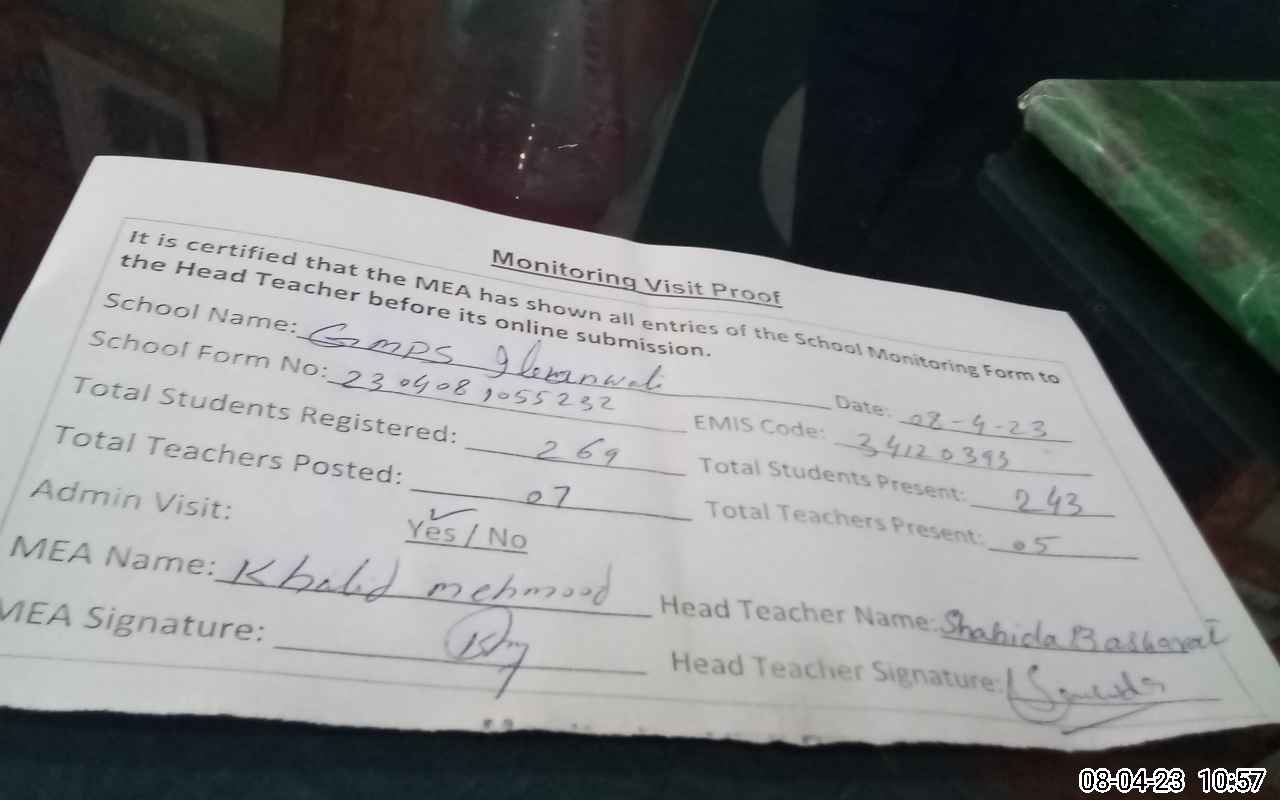 Monitoring Visit Proof
It is certified that the MEA has shown all entries of the School Monitoring Form to
the Head Teacher before its online submission.
School Name: GMPS Date: 08-4-23
School Form No: 2304081055232 EMIS Code: 34120393
Total Students Registered: 269 Total Students Present: 243
Total Teachers Posted: 07 Total Teachers Present: 05
Admin Visit: Yes / No
MEA Name: Khalid mehmood Head Teacher Name: Shahida Basharat
MEA Signature: Head Teacher Signature:
08-04-23 10:57